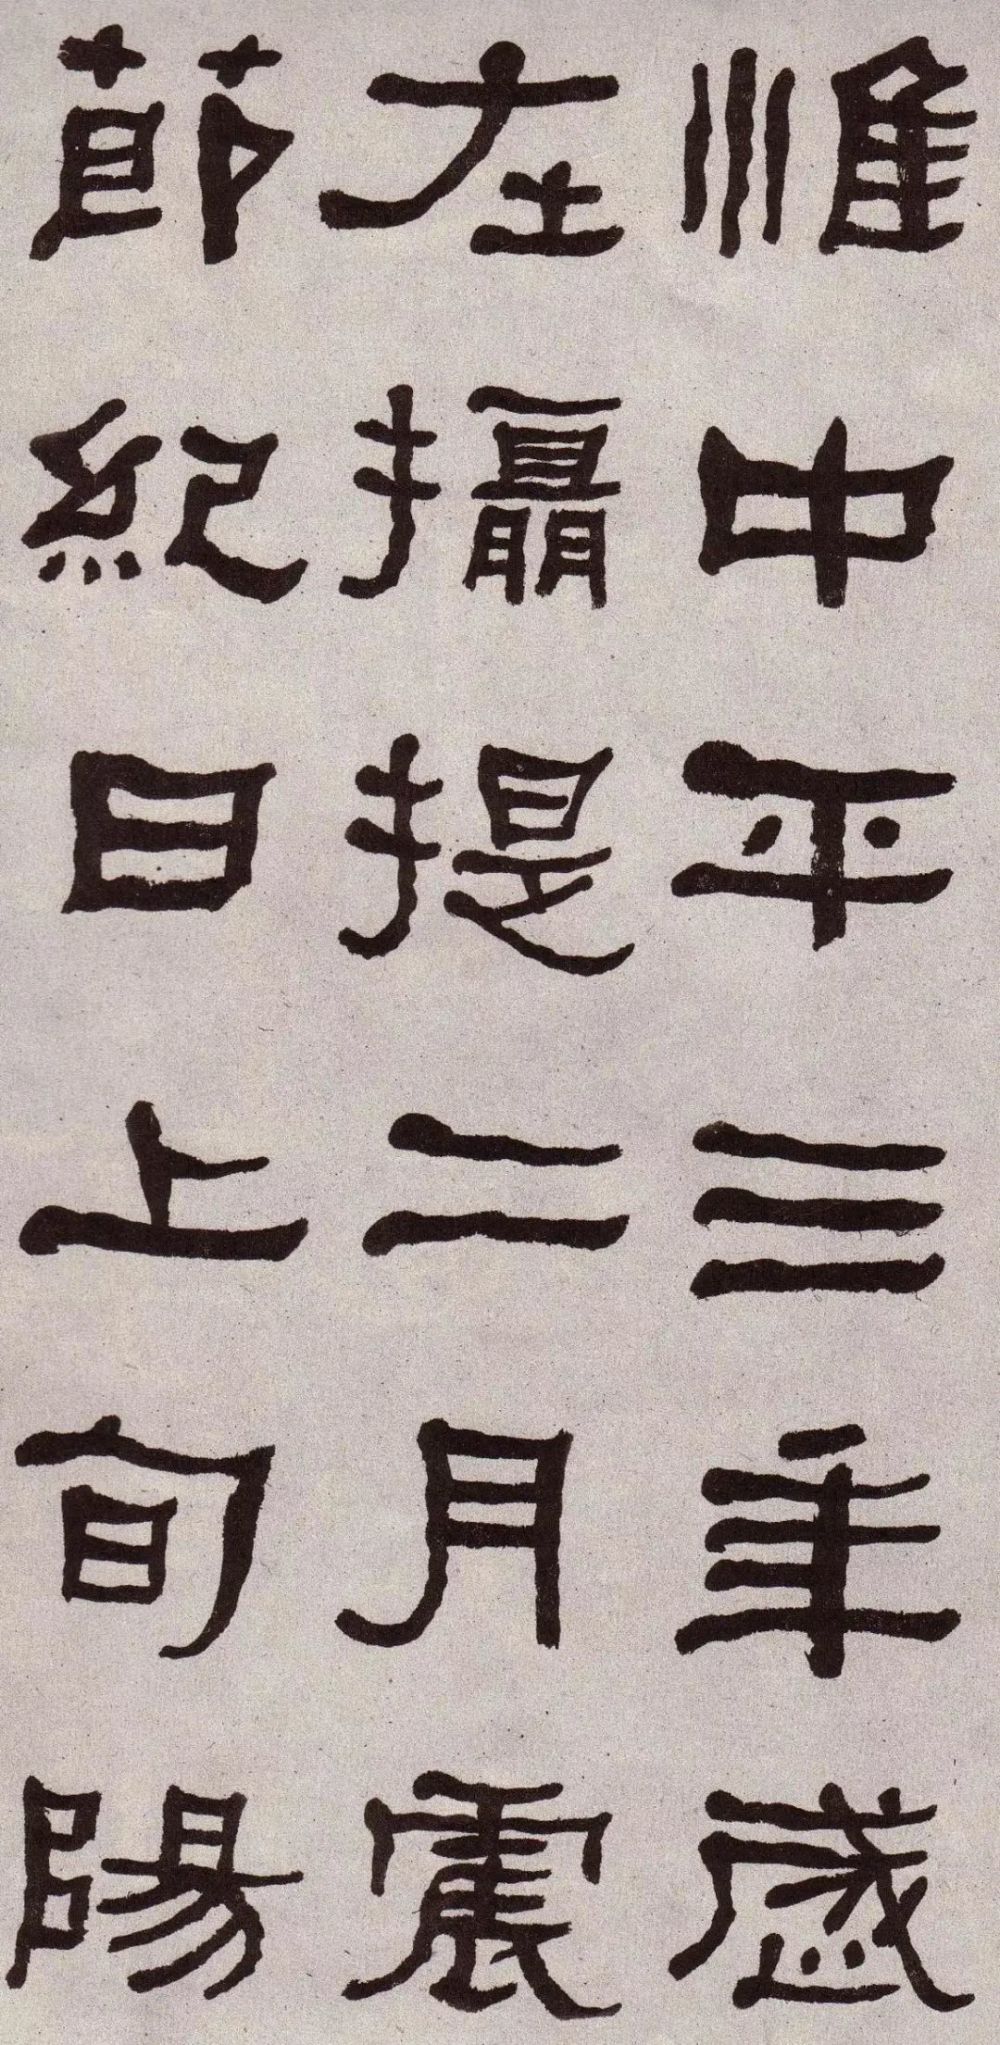 惟中平三年歲
在攝提二月震
節紀日上旬陽